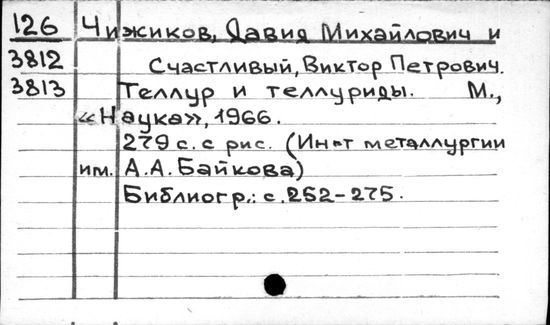 126 Чижиков, Давид Михайлович и
3812 Счастливый, Виктор Петрович.
3813 Теллур и теллуриды. М.,
«Наука», 1966.
279 с. с рис. (Ин-т металлургии
им. А.А. Байкова)
Библиогр.: с. 252-275.